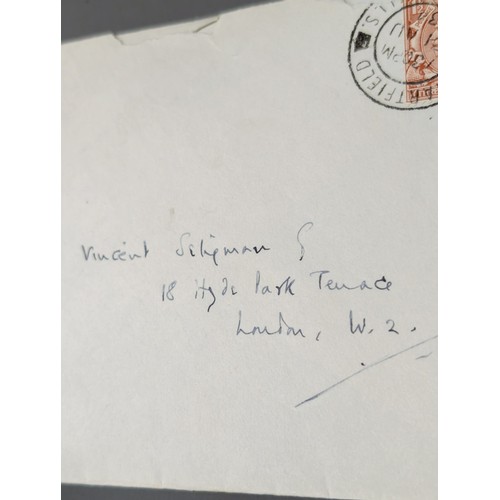 Vincent Seligman
18 Hyde Park Terrace
London, W. 2.